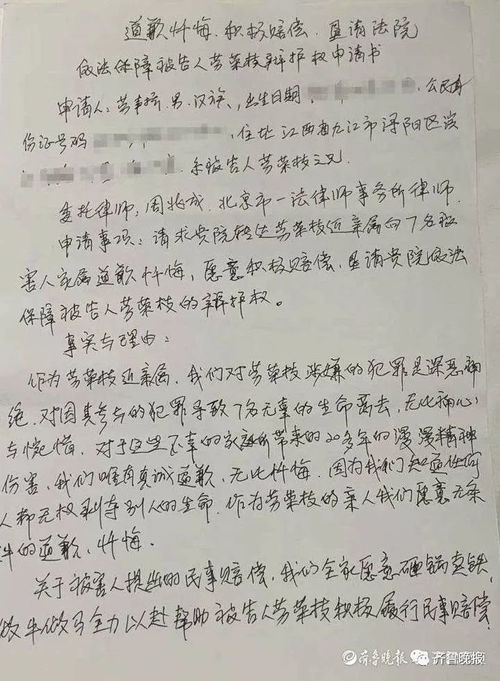 道歉忏悔、积极赔偿、恳请法院
依法保障被告人劳荣枝辩护权申请书
申请人:劳声桥,男,汉族,出生日期 公民身
份证号码 住址江西省九江市浔阳区滨
系被告人劳荣枝之兄.
委托律师:周兆成,北京市一法律师事务所律师.
申请事项:请求贵院转达劳荣枝近亲属向7名被
害人家属道歉忏悔,愿意积极赔偿,恳请贵院依法
保障被告人劳荣枝的辩护权。
事实与理由:
作为劳荣枝近亲属,我们对劳荣枝涉嫌的犯罪是深恶痛
绝,对因其参与的犯罪导致7名无辜的生命离去,无比痛心
与惋惜,对于这些不幸的家庭所带来的20多年的漫漫精神
伤害,我们唯有真诚道歉,无比忏悔.因为我们知道任何
人都无权剥夺别人的生命.作为劳荣枝的亲人我们愿意无条
件的道歉,忏悔.
关于被害人提出的民事赔偿,我们全家愿意砸锅卖铁,
做牛做马全力以赴帮助被告人劳荣枝积极履行民事赔偿
齐鲁晚报 齐鲁晚报